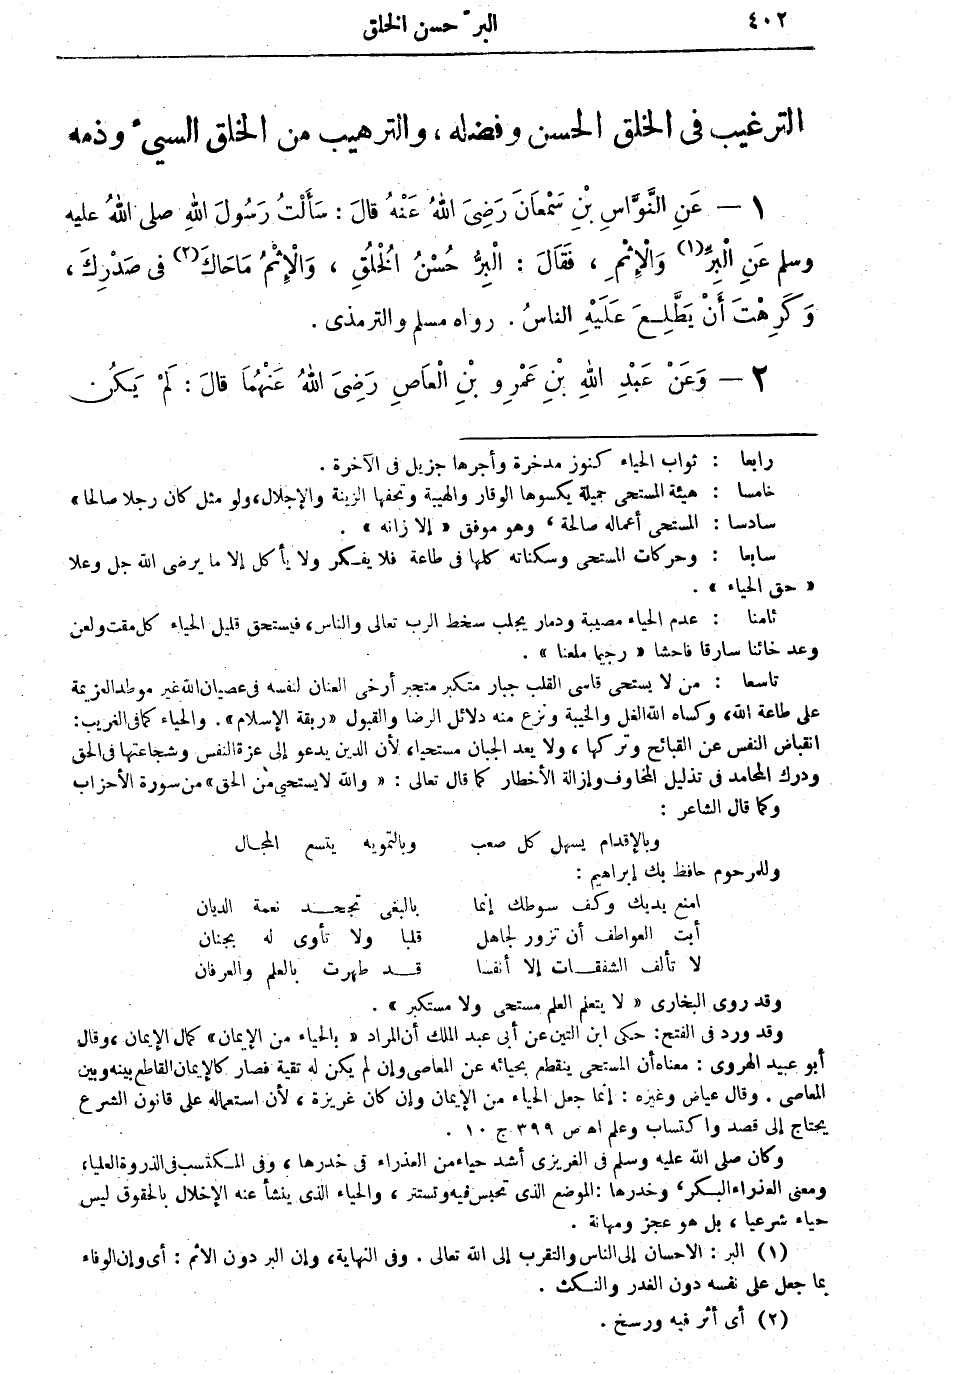 ٤٠٢
البر حسن الخلق
الترغيب فى الخلق الحسن وفضله ، والترهيب من الخلق السيىء وذمه
١ — عَنِ النَّوَّاسِ بْنِ سَمْعَانَ رَضِىَ اللهُ عَنْهُ قَالَ : سَأَلْتُ رَسُولَ اللهِ صلى اللهُ عليه
وسلم عَنِ الْبِرِّ(١) وَالْإِثْمِ ، فَقَالَ : الْبِرُّ حُسْنُ الْخُلُقِ ، وَالْإِثْمُ مَاحَاكَ(٢) فى صَدْرِكَ ،
وَكَرِهْتَ أَنْ يَطَّلِعَ عَلَيْهِ الناسُ . رواه مسلم والترمذى .
٢ — وَعَنْ عَبْدِ اللهِ بْنِ عَمْرِو بْنِ الْعَاصِ رَضِىَ اللهُ عَنْهُمَا قالَ : لَمْ يَكُن
رابعا : ثواب الحياء كنوز مدخرة وأجرها جزيل فى الآخرة .
خامسا : هيئة المستحى جميلة يكسوها الوقار والهيبة وتحفها الزينة والإجلال، ولو مثل كان رجلا صالحا »
سادسا : المستحى أعماله صالحة ، وهو موفق « إلا زانه » .
سابعا : وحركات المستحى وسكناته كلها فى طاعة فلا يفكر ولا يأكل إلا ما يرضى الله جل وعلا
« حق الحياء » .
ثامنا : عدم الحياء مصيبة ودمار يجلب سخط الرب تعالى والناس، فيستحق قليل الحياء كل مقت ولعن
وعد خائنا سارقا فاحشا « رجيما ملعنا » .
تاسعا : من لا يستحى قاسى القلب جبار متكبر متجبر أرخى العنان لنفسه فى عصيان الله غير موطد العزيمة
على طاعة الله، وكساه الله الغل والخيبة ونزع منه دلائل الرضا والقبول «ربقة الإسلام» . والحياء كما فى الغريب:
انقباض النفس عن القبائح وتركها ، ولا يعد الجبان مستحيا، لأن الدين يدعو إلى عزة النفس وشجاعتها فى الحق
ودرك المحامد فى تذليل المخاوف وإزالة الأخطار كما قال تعالى : « والله لا يستحيي من الحق» من سورة الأحزاب
وكما قال الشاعر :
وبالإقدام يسهل كل صعب وبالتمويه يتسع المجال
وللمرحوم حافظ بك إبراهيم :
امنع يديك وكف سوطك إنما بالبغى تجحد نعمة الديان
أبت العواطف أن تزور لجاهل قلبا ولا تأوى له بجنان
لا تألف الشفقات إلا أنفسا قد طهرت بالعلم والعرفان
وقد روى البخارى « لا يتعلم العلم مستحى ولا مستكبر » .
وقد ورد فى الفتح: حكى ابن التين عن أبى عبد الملك أن المراد « بالحياء من الإيمان» كمال الإيمان ،وقال
أبو عبيد الهروى : معناه أن المستحى ينقطع بحيائه عن المعاصى وإن لم يكن له تقية فصار كالإيمان القاطع بينه وبين
المعاصى . وقال عياض وغيره : إنما جعل الحياء من الإيمان وإن كان غريزة ، لأن استعماله على قانون الشرع
يحتاج إلى قصد واكتساب وعلم اه ص ٣٩٩ ج ١٠ .
وكان صلى الله عليه وسلم فى الغريزى أشد حياء من العذراء فى خدرها ، وفى المكتسب فى الذروة العليا،
ومعنى العذراء البكر، وخدرها :الموضع الذى تحبس فيه وتستتر ، والحياء الذى ينشأ عنه الإخلال بالحقوق ليس
حياء شرعيا ، بل هو عجز ومهانة .
(١) البر : الاحسان إلى الناس والتقرب إلى الله تعالى . وفى النهاية، وإن البر دون الاثم : أى وإن الوفاء
بما جعل على نفسه دون الغدر والنكث .
(٢) أى أثر فيه ورسخ .